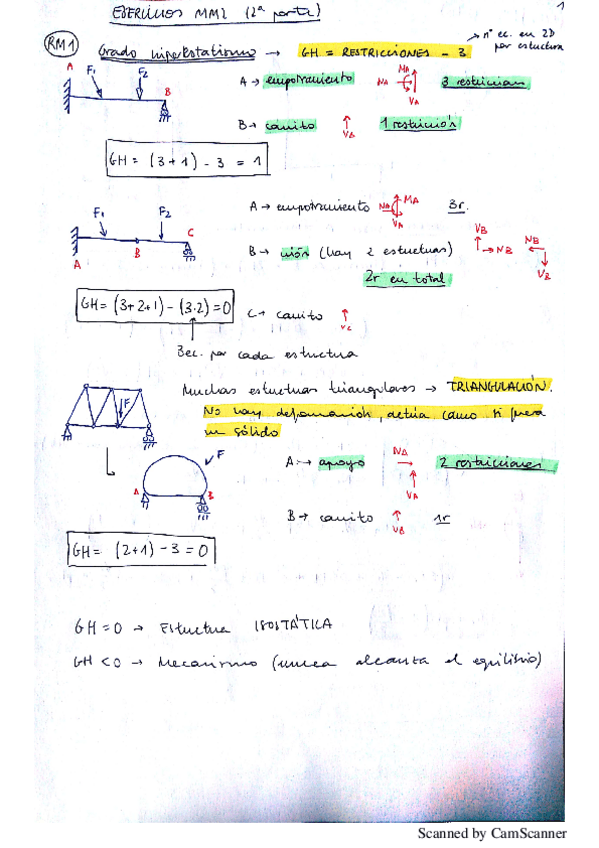 EJERCICIOS MM2 (2ª parte)
1
RM1 Grado hiperestatismo → GH = RESTRICCIONES - 3
→ nº ec. en 2D
por estructura
A F1 F2 B
A → empotramiento NA MA VA 3 restriccion
B → carrito VA 1 restricción
GH = (3+1) - 3 = 1
F1 F2 C A B
A → empotramiento NA MA VA 3r.
B → unión (hay 2 estructuras) VB NB NB VB
2r en total
GH = (3+2+1) - (3·2) = 0
C → carrito VC
3ec. por cada estructura
Muchas estructuras triangulares → TRIANGULACIÓN.
No hay deformación, actúa como si fuera
un sólido
F
F A B
A → apoyo NA VA 2 restricciones
B → carrito VB 1r
GH = (2+1) - 3 = 0
GH = 0 → Estructura ISOSTÁTICA
GH < 0 → Mecanismo (nunca alcanza el equilibrio)
Scanned by CamScanner